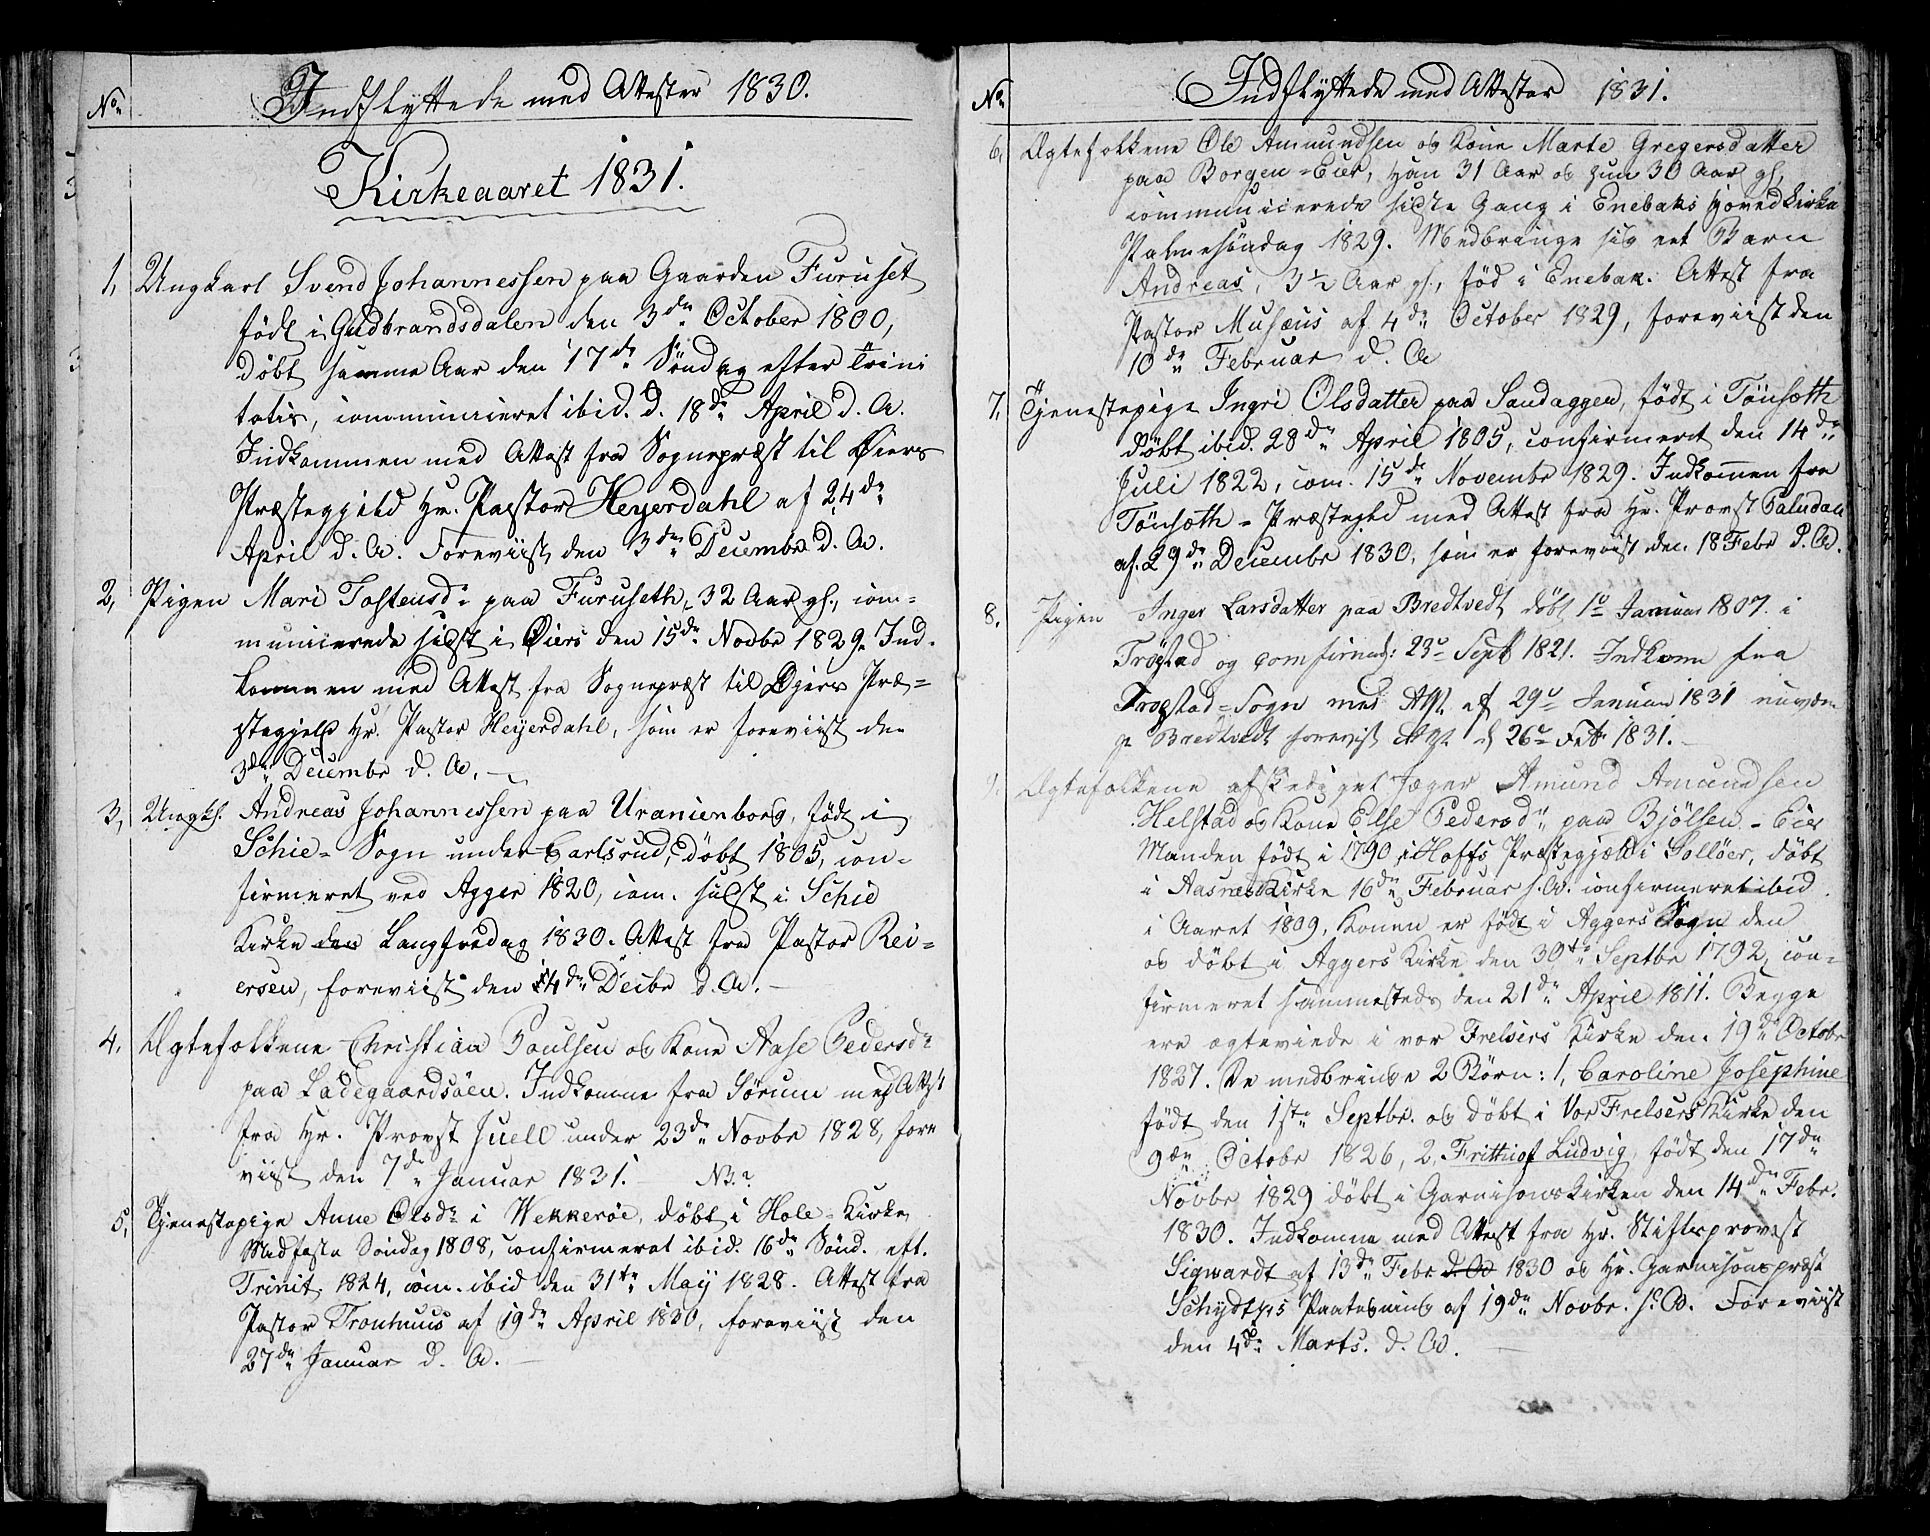 No.
Indflyttede med Attester 1830.
Kirkeaaret 1831.
1, Ungkarl Svend Johannessen paa Gaarden Furuset
født i Gudbrandsdalen den 3die October 1800,
døbt samme Aar den 17de Søndag efter Trini
tatis, communiceret ibid. d. 18de April d. A.
Indkommen med Attest fra Sognepræst til Øiers
Præstegjeld Hr. Pastor Heyerdahl af 24de
April d. A. Foreviist den 3die Decembr d. A.
2, Pigen Mari Tostensd. paa Furuseth, 32 Aar gl., com=
municerede sidst i Øiers den 15de Novbr 1829. Ind-
kommen med Attest fra Sognepræst til Øjers Præ=
stegjeld Hr. Pastor Heyerdahl, som er foreviist den
3die Decembr d. A. —
3, Ungk. Andreas Johannessen paa Uranienborg, født i
Schie= Sogn under Carlsrud, døbt 1805, con=
firmeret ved Agger 1820, com. sidst i Schie
Kirke den Langfredag 1830. Attest fra Pastor Rei=
ersen, foreviist den 14de Decbr d. A. —
4, Ægtefolkene Christian Poulsen og Kone Aase Pedersdr
paa Ladegaardsøen. Indkomne fra Sørum med Attest
fra Hr. Provst Juell under 23de Novbr 1828, fore
viist den 7de Januar 1831. NB.?
5, Tjenestepige Anne Olsdr i Wekkerøe, døbt i Hole=Kirke
Midfaste Søndag 1808, confirmeret ibid. 16de Sønd. eft.
Trinit. 1824, com. ibid den 31te Maij 1828. Attest fra
Pastor Tronhuus af 19de April 1830, foreviist den
27de Januar d. A. —
No.
Indflyttede med Attester 1831.
6, Ægtefolkene Ole Amundsen og Kone Marte Gregersdatter
paa Borgen=Eier, Han 31 Aar og Hun 30 Aar gl,
communicerede sidste Gang i Enebaks Hovedkirke
Palmesöndag 1829. Medbringe sig eet Barn
Andreas, 3½ Aar gl., fød i Enebak. Attest fra
Pastor Musæus af 4de October 1829, foreviist den
10de Februar d. A
7, Tjenestepige Ingri Olsdatter paa Sandaggen, født i Tönseth
døbt ibid. 28de April 1805, confirmeret den 14de
Juli 1822, com. 15de Novembr 1829. Indkommen fra
Tönseth=Præstegjld med Attest fra Hr. Provst Paludan
af. 29de Decembr 1830, som er foreviist den 18 Febr d. A.
8. Pigen Inger Larsdatter paa Bredtvedt döbt 1e Januar 1807. i
Trögstad og comfirmed: 23e Sept 1821. Indkomn fra
Trogstad=Sogn med Att. af 29e Januar 1831
p Bredtvedt forevist d 26e Feb 1831. —
9. Ægtefolkene afskediget Jæger Amund Amundsen
Helstad og Kone Else Pedersdr paa Bjölsen=Eier
Manden født i 1790 i Hoffs Præstegjæld i Sollöer, døbt
i Aasnes Kirke 16de Februar s. A. confirmeret ibid
i Aaret 1809, Konen er født i Aggers Sogn den
og døbt i Aggers Kirke den 30te Septbr 1792, con=
firmeret sammesteds den 21de April 1811. Begge
ere ægteviede i vor Frelsers Kirke den 19de Octobr
1827. De medbringe 2 Børn: 1, Caroline Josephine
født den 1ste Septbr. og døbt i Vor Frelsers Kirke den
9de Octobr 1826, 2, Frithiof Ludvig, født den 17de
Novbr 1829 døbt i Garnisonskirken den 14de Febr.
1830. Indkomne med Attest fra Hr. Stiftsprovst
Sigwardt af 13de Febr d. A. 1830 og Hr. Garnisonspræst
Schydtzes Paategning af 19de Novbr. s. A. Foreviist
den 4de Marts. d. A. —